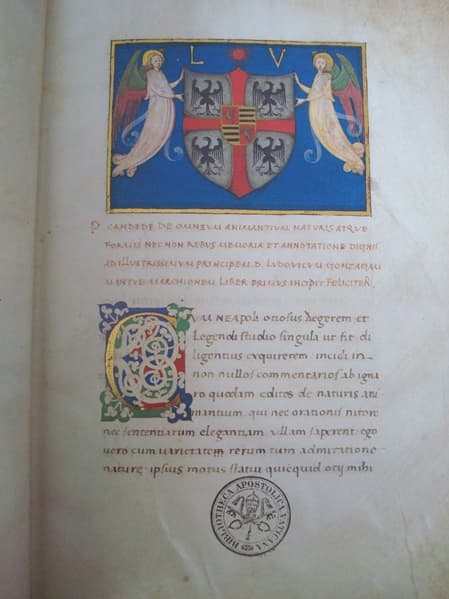 L V
P CANDEDE DE OMNIVM ANIMANTIVM NATVRIS ATQVE
FORMIS NEC NON REBVS MEMORIA ET ANNOTATIONE DIGNIS
AD ILLVSTRISSIMVM PRINCIPEM D. LVDOVICVM GONZAGAM
MANTVE MARCHIONEM LIBER PRIMVS INCIPIT FELICITER
CVM NEAPoli otiosus degerem et
Legendi studio singula ut fit di
ligentius exquirerem incidi in
non nullos commentarios ab igna
ro quodam editos de naturis ani
mantium. qui nec orationis nitore
nec sententiarum elegantiam. Ullam saperent. ego
vero cum varietatem rerum tum admiratione
nature ipsius motus statui quicquid otij mihi
BIBLIOTHECA APOSTOLICA VATICANA